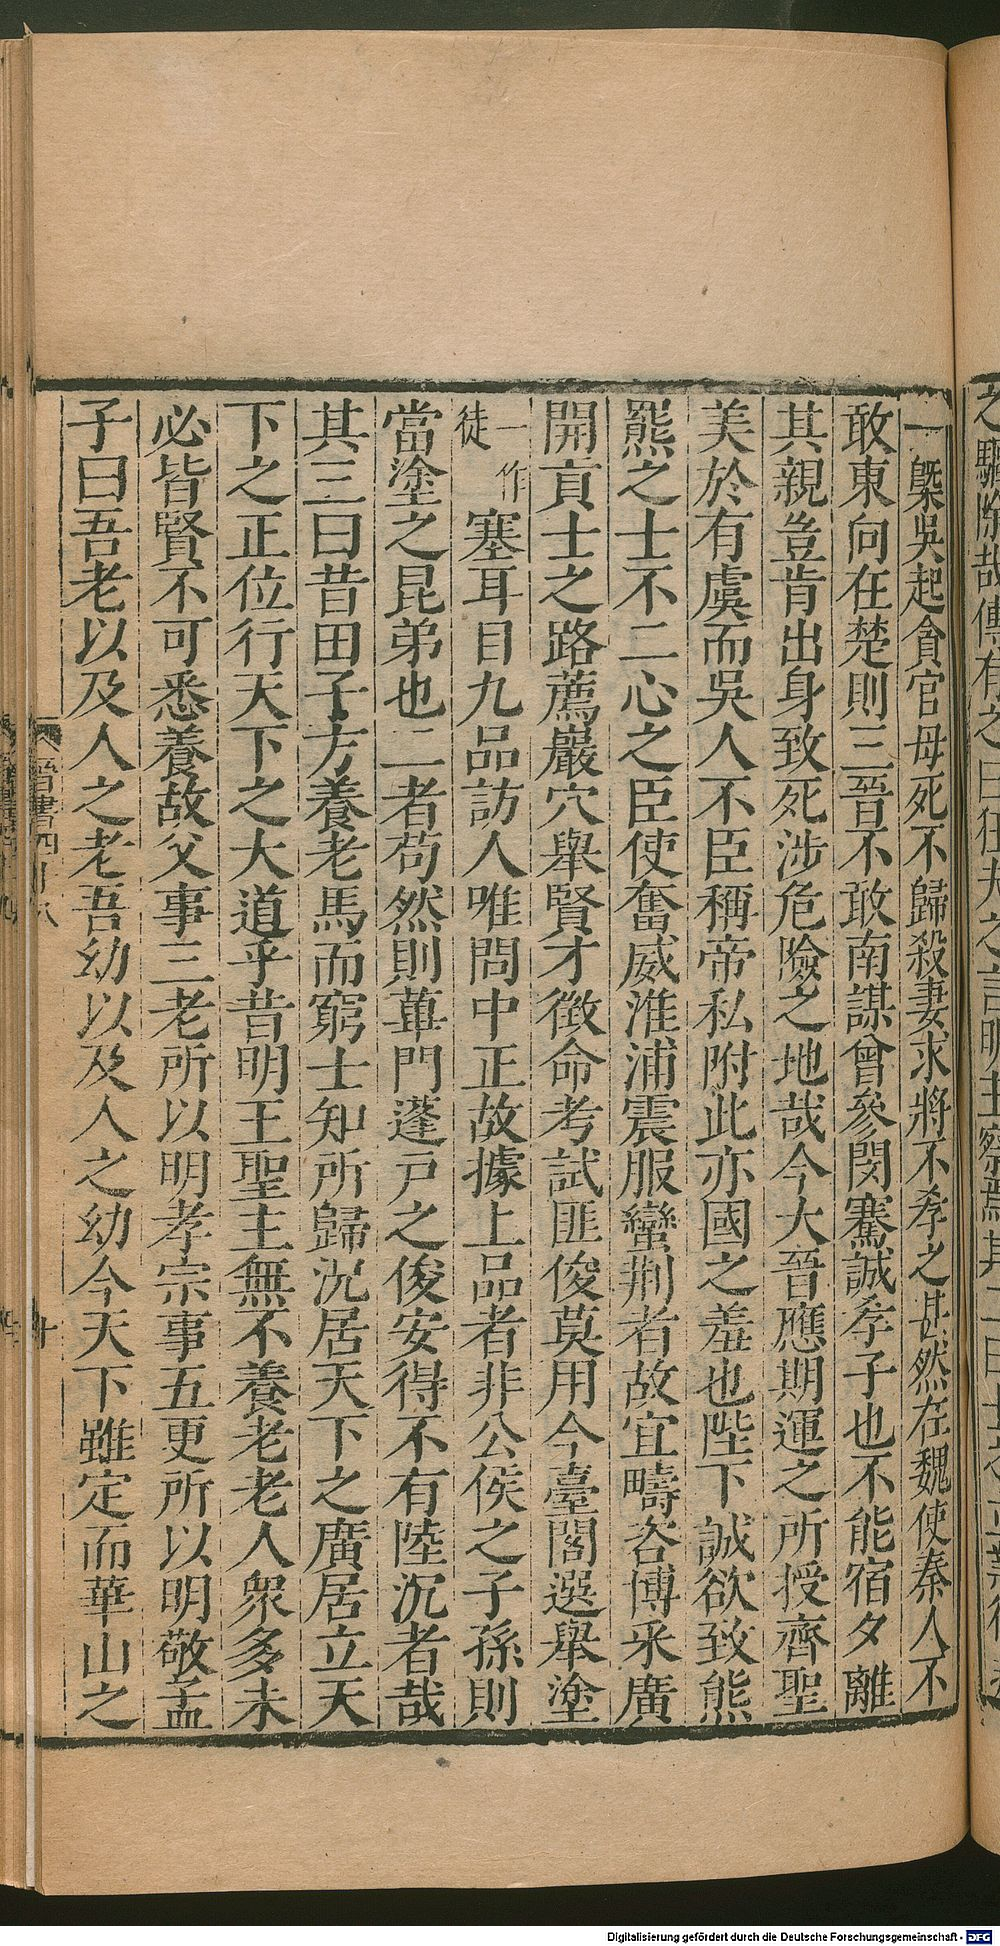 一槩吳起貪官母死不歸殺妻求將不孝之甚然在魏使秦人不
敢東向在楚則三晉不敢南謀曾參閔騫誠孝子也不能宿夕離
其親豈肯出身致死涉危險之地哉今大晉應期運之所授齊聖
美於有虞而吳人不臣稱帝私附此亦國之羞也陛下誠欲致熊
羆之士不二心之臣使奮威淮浦震服蠻荆者故宜疇咨博采廣
開貢士之路薦巖穴舉賢才徵命考試匪俊莫用今臺閣選舉塗
一作
徒
塞耳目九品訪人唯問中正故據上品者非公侯之子孫則
當塗之昆弟也二者苟然則蓽門蓬戸之俊安得不有陸沉者哉
其三曰昔田子方養老馬而窮士知所歸況居天下之廣居立天
下之正位行天下之大道乎昔明王聖主無不養老老人衆多未
必皆賢不可悉養故父事三老所以明孝宗事五更所以明敬孟
子曰吾老以及人之老吾幼以及人之幼今天下雖定而華山之
晉書四十八
十
Digitalisierung gefördert durch die Deutsche Forschungsgemeinschaft - DFG